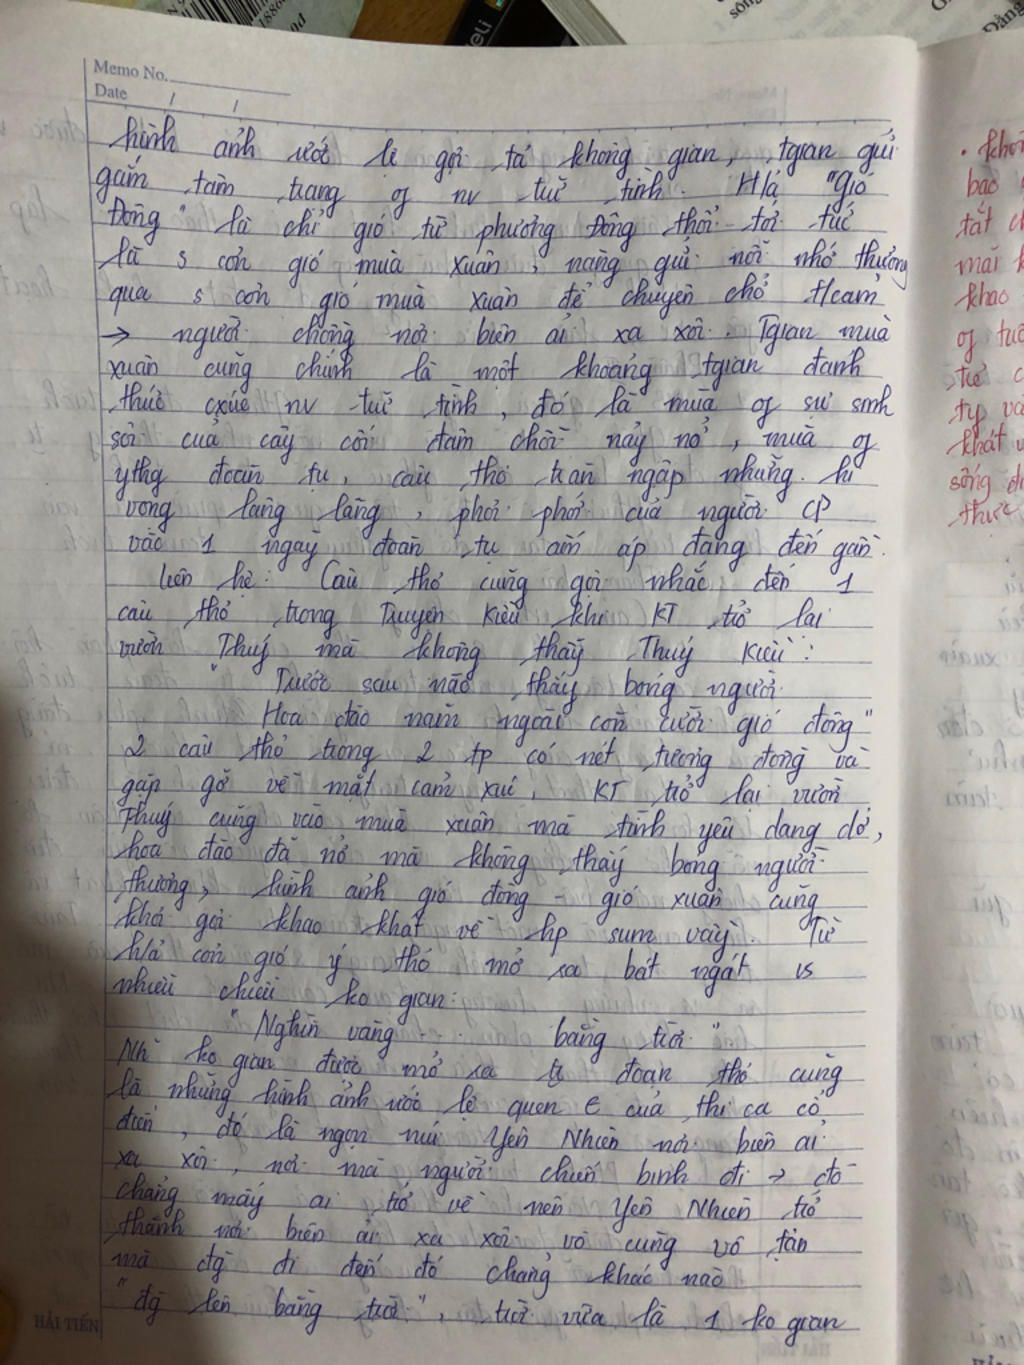 Memo No.
Date / /
hình ảnh ước lệ gợi tả không gian, tgian gửi
gắm tâm trạng of nv trữ tình. H/ả "gió
Đông" là chỉ gió từ phương Đông thổi tới tức
là s cơn gió mùa xuân, nàng gửi nỗi nhớ thương
qua s cơn gió mùa xuân để chuyên chở tcảm
→ người chồng nơi biên ải xa xôi. Tgian mùa
xuân cũng chính là một khoảng tgian đánh
thức cxúc nv trữ tình, đó là mùa of sự sinh
sôi của cây cối đâm chồi nảy nở, mùa of
ythg đoàn tụ, câu thơ tràn ngập những hi
vọng lâng lâng, phơi phới của người CP
vào 1 ngày đoàn tụ ấm áp đang đến gần.
Liên hệ: Câu thơ cũng gợi nhắc đến 1
câu thơ trong Truyện Kiều khi KT trở lại
vườn Thuý mà không thấy Thuý Kiều:
"Trước sau nào thấy bóng người
Hoa đào năm ngoái còn cười gió đông"
2 câu thơ trong 2 tp có nét tương đồng và
gặp gỡ về mặt cảm xúc, KT trở lại vườn
Thuý cũng vào mùa xuân mà tình yêu dang dở,
hoa đào đã nở mà không thấy bóng người
thương, hình ảnh gió đông - gió xuân cũng
khơi gợi khao khát về hp sum vầy. Từ
h/ả cơn gió ý thơ mở ra bát ngát vs
nhiều chiều ko gian:
"Nghìn vàng . . . bằng trời"
ko gian được mở ra đoạn thơ cũng
là những hình ảnh ước lệ quen của thi ca cổ
điển, đó là ngọn núi Yên Nhiên nơi biên ải
xa xôi, nơi mà người chiến binh đi →
chẳng mấy ai trở về nên Yên Nhiên trở
thành nơi biên ải xa xôi, vô cùng vô tận
mà đg đi đến đó chẳng khác nào
"đg lên bằng trời", trời vừa là 1 ko gian
HẢI TIẾN
bao
khao
sống
thực